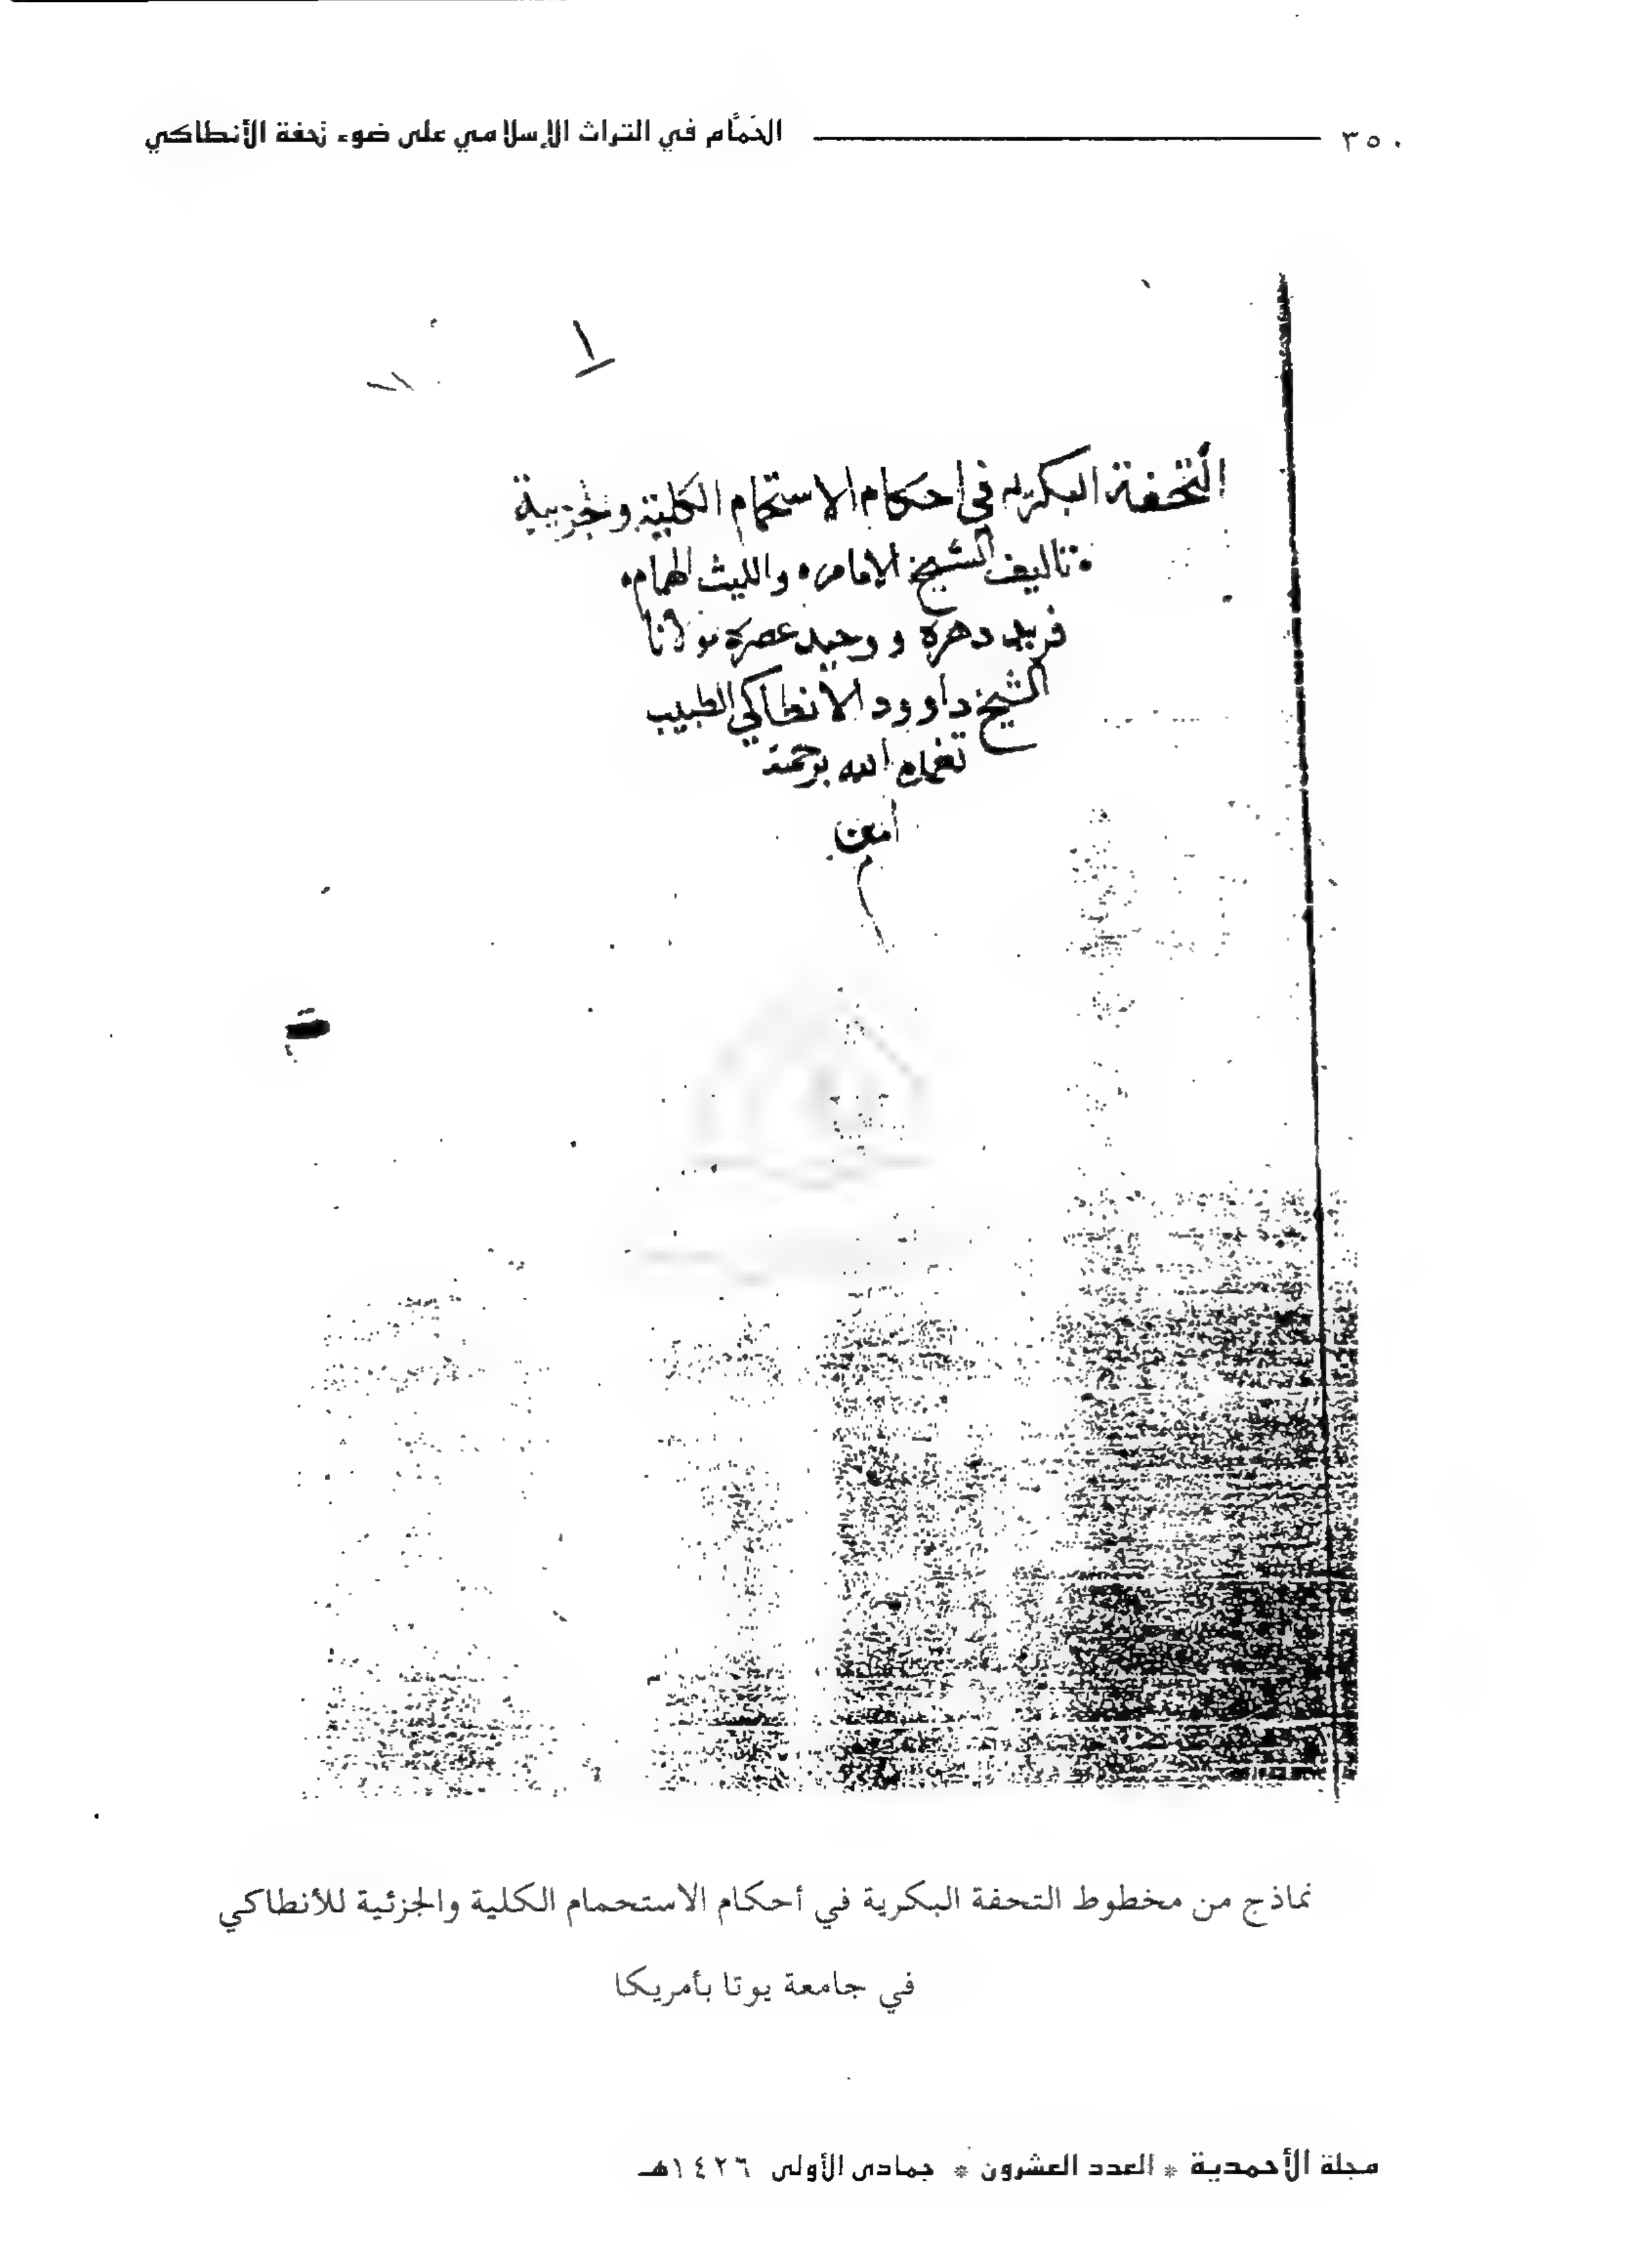 ٣٥٠ الحَمَّام في التراث الإسلامي على ضوء تحفة الأنطاكي
١
التحفة البكريه في احكام الاستحمام الكلية وجزيية
تاليف الشيخ الامام والليث الهمام
فريد دهره ووحيد عصره مولانا
الشيخ داوود الانطاكي الطبيب
تغمده الله برحمته
امين
نماذج من مخطوط التحفة البكرية في أحكام الاستحمام الكلية والجزئية للأنطاكي
في جامعة يوتا بأمريكا
مجلة الأحمدية * العدد العشرون * جمادى الأولى ١٤٢٦هـ